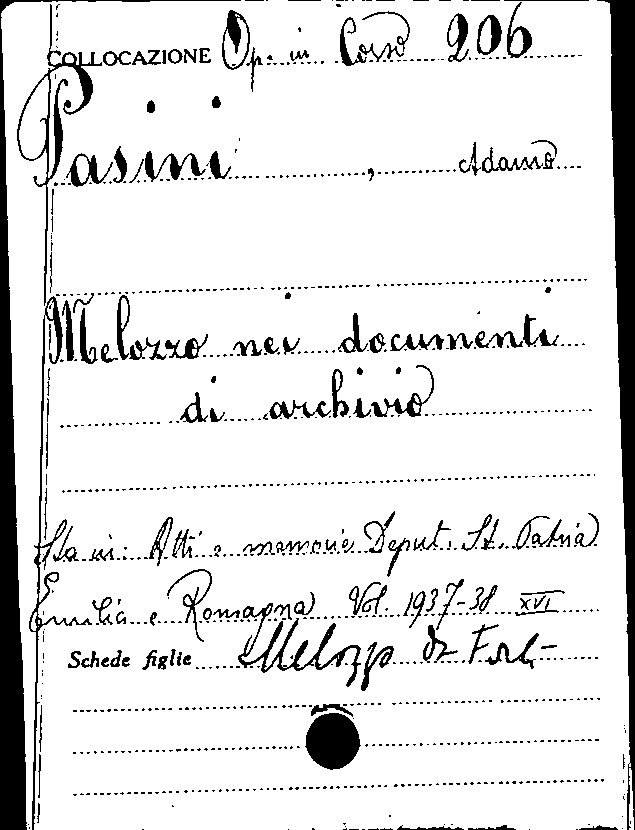 COLLOCAZIONE Op. in Corso 206
Pasini, Adamo
Melozzo nei documenti
di archivio
Sta in: Atti e memorie Deput. St. Patria
Emilia e Romagna Vol. 1937-38 XVI
Schede figlie Melozzo da Forlì